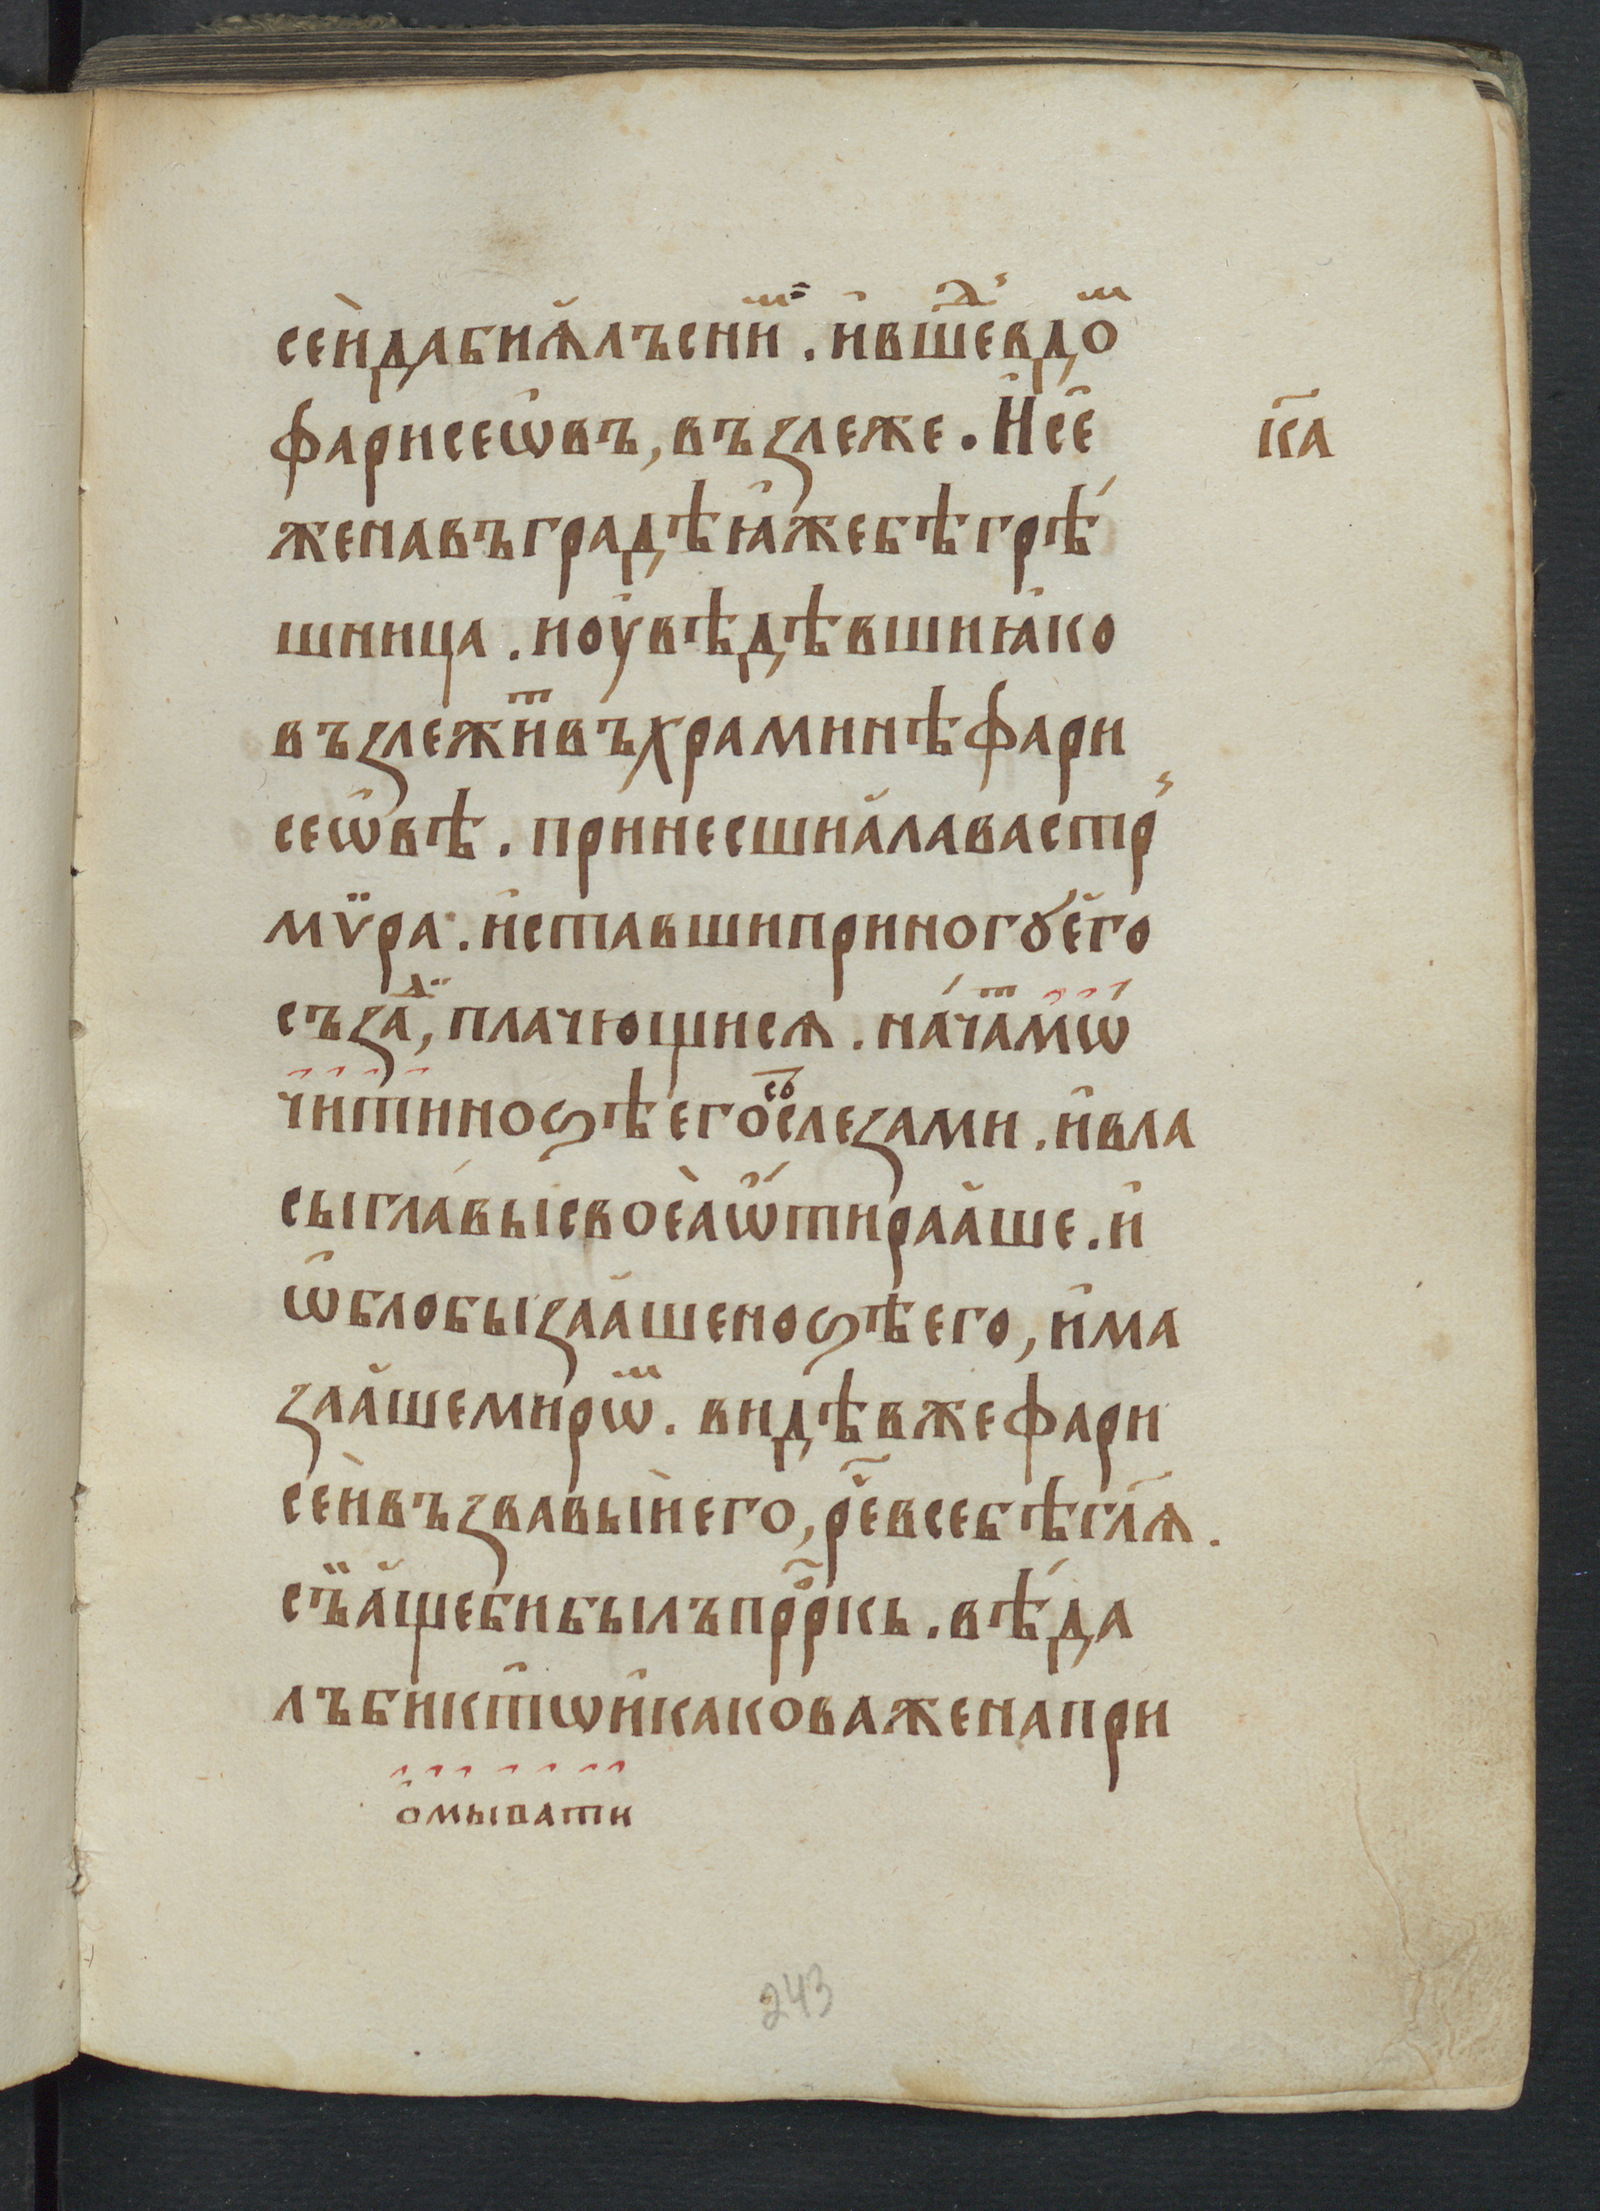 сеѝ да би ꙗ҆лъ с ни́мⷨ . и҆ вше́дⷣ в до́мⷨ
фарисеѡ҆въ, възлеже . И҆ се҆
жена въ градѣ ꙗ҆же бѣ грѣ́
к҃а
шница . и оу҆вѣдѣвши ꙗ҆ко
възлежитⷮ въ храминѣ фари
сеѡ҆вѣ . принесши а҆лавастр꙽
мѵ̈ра . и҆ ставши при ногꙋ е҆го
съзадⷣ, плачющися . на́чатⷮ мѡ́
чити ноѕѣ его со слезами . и҆ вла
сы гла́вы своеѧ̀ ѡ҆тираа҆ше . и҆
ѡ҆блобызаа҆ше ноѕѣ его, и҆ ма
заа҆ше мирѡмⷨ . видѣв же фари
сеѝ възвавыѝ его, рч҃е в себѣ гл҃ѧ .
съ̈ и а҆ще би былъ прⷪ҇ркь . вѣ́да
лъ би̇ кт̇ѡ и҆ какова жена при
о҆мывати
243